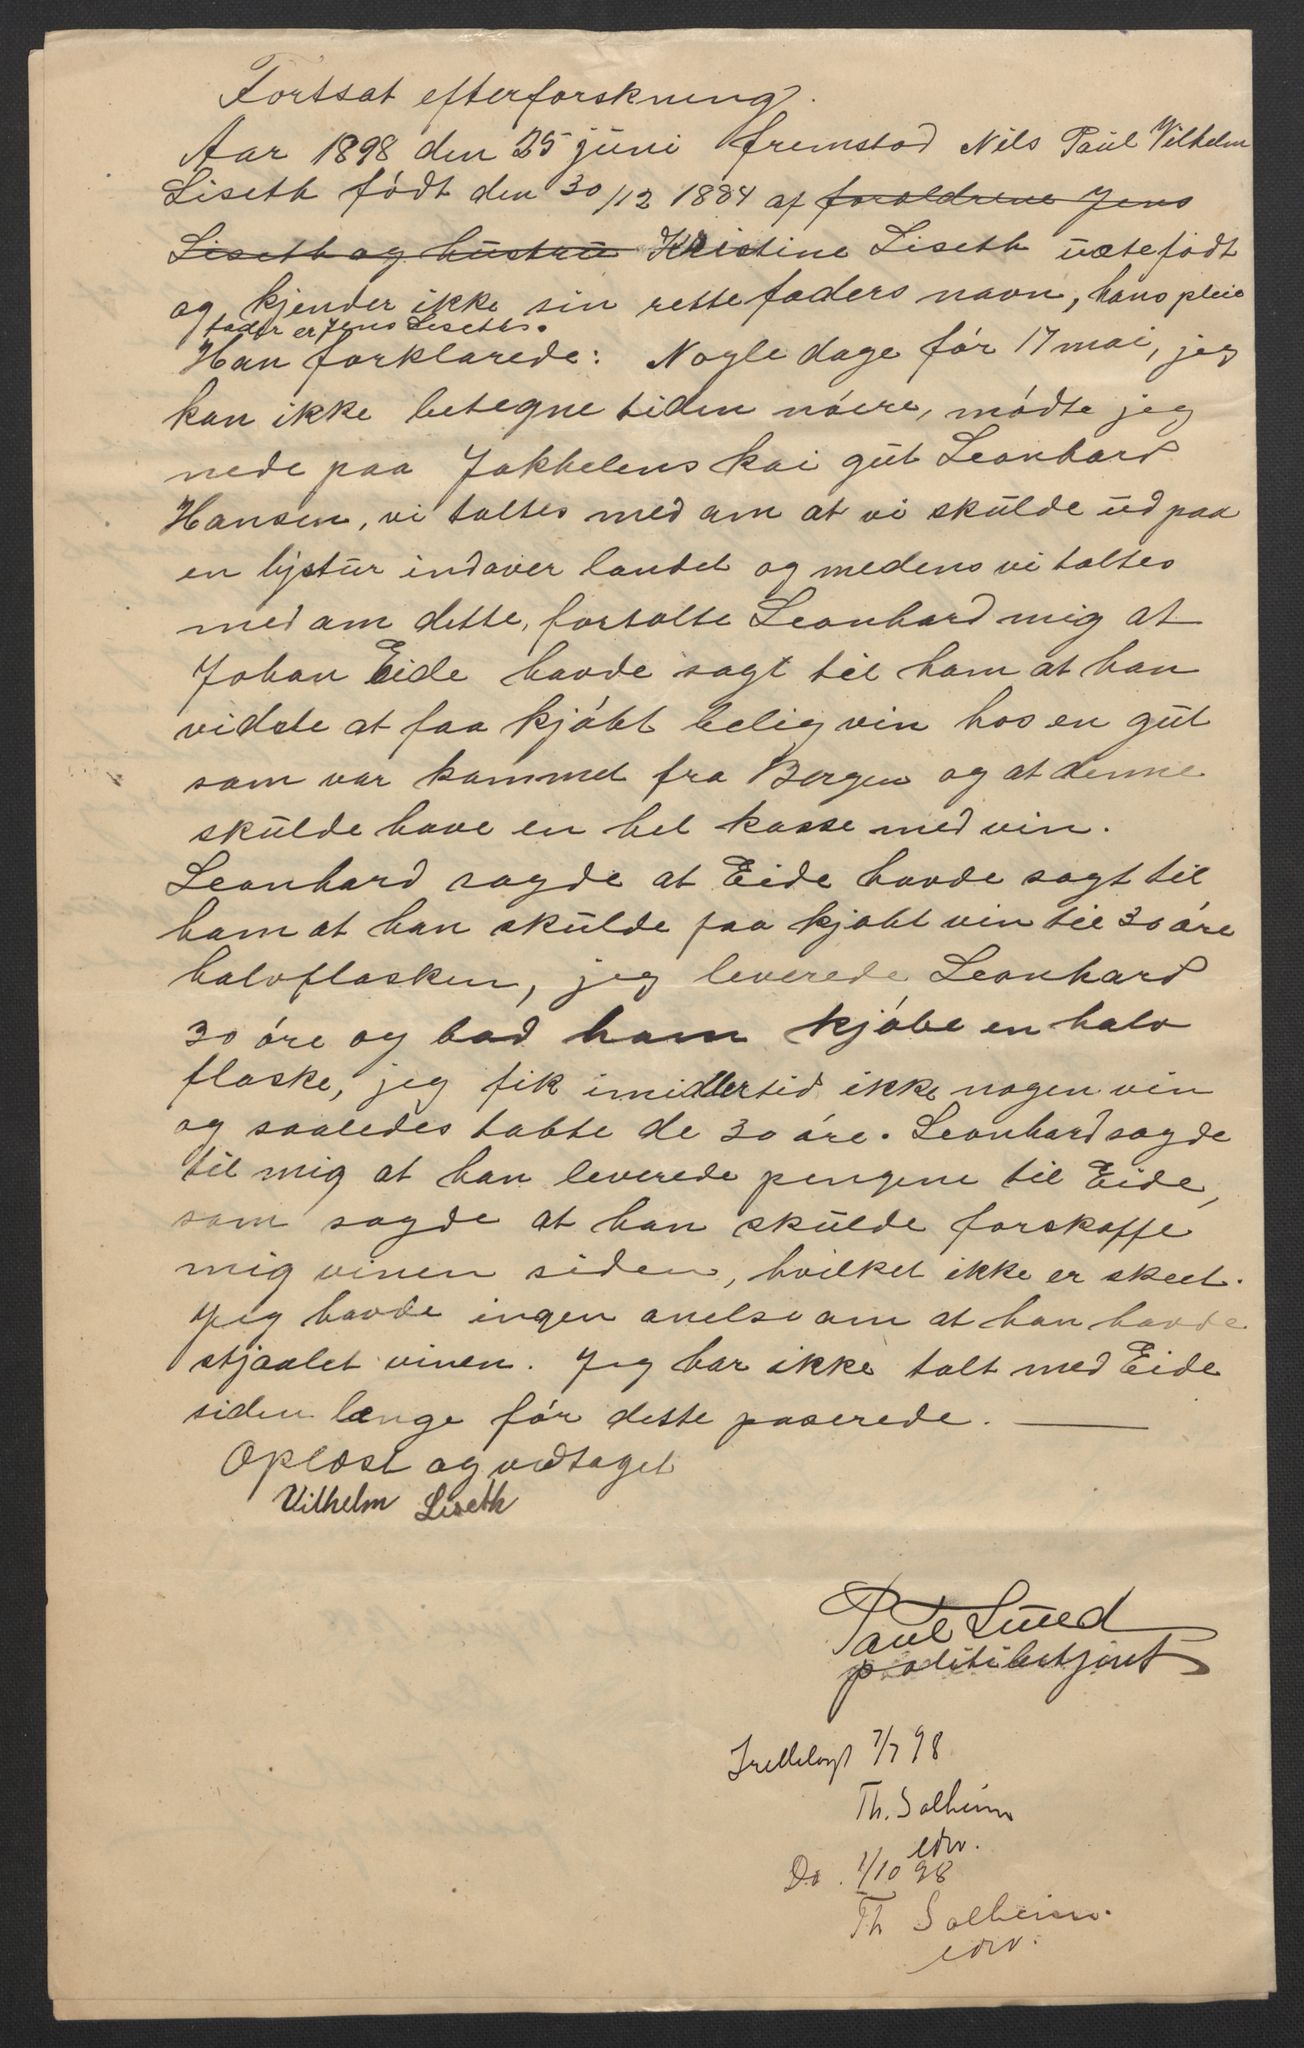 Fortsat efterforskning.
Aar 1898 den 25 juni fremstod Nils Paul Vilhelm
Liseth født den 30/12 1884 af foroldrene Jens
Liseth og hustru Kristine Liseth uætefødt
og kjender ikke sin rette faders navn, hans pleie
fader er Jens Liseth.
Han forklarede: Nogle dage før 17 mai, jeg
kan ikke betegne tiden nóere, mødte jeg
nede paa Jakhelens kai gut Leonhard
Hansen, vi taltes med om at vi skulde ud paa
en lystur indover landet og medens vi taltes
med om dette, fortalte Leonhard mig at
Johan Eide havde sagt til ham at han
vidste at faa kjøbt belig vin hos en gut
som var kommet fra Bergen og at denne
skulde have en hel kasse med vin.
Leonhard sagde at Eide havde sagt til
ham at han skulde faa kjøbt vin til 30 øre
halvflasken, jeg leverede Leonhard
30 øre og bad ham kjøbe en halv
flaske, jeg fik imidlertid ikke nogen vin
og saaledes tabte de 30 øre. Leonhard sagde
til mig at han leverede pengene til Eide,
som sagde at han skulde forskaffe
mig vinen siden, hvilket ikke er skeet.
Jeg havde ingen anelse om at han havde
stjaalet vinen. Jeg har ikke talt med Eide
siden længe før dette paserede.
Oplæst og vedtaget
Vilhelm Liseth
Paul Lund
politibetjent
7/7 98
Th. Solheim
edsv.
Do. 1/10 98
Th Solheim.
edsv.